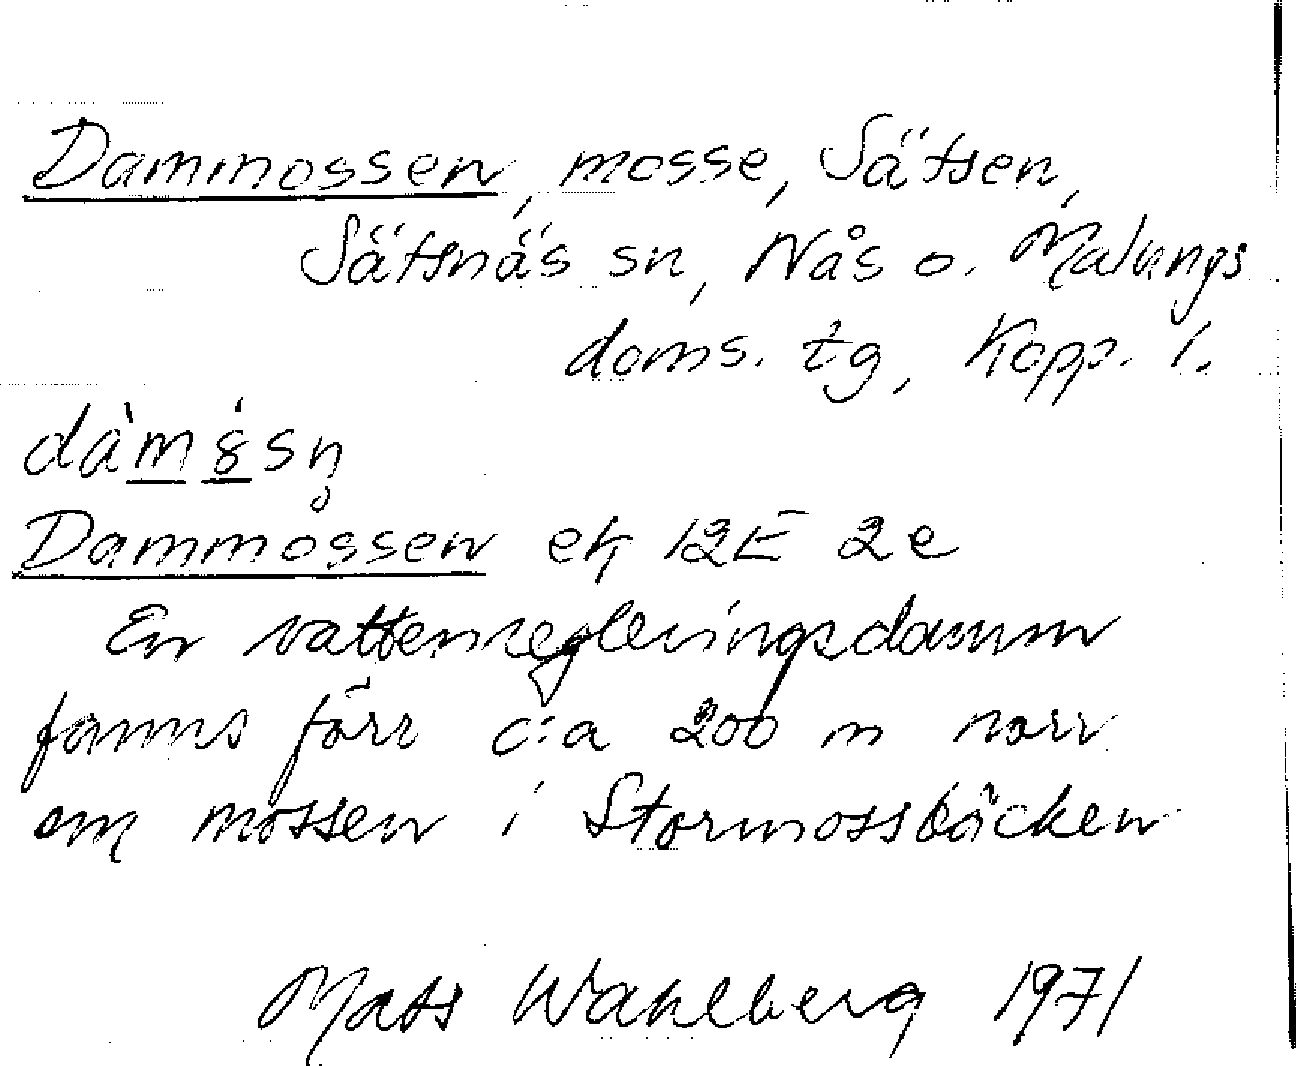 Dammossen, mosse, Sätsen,
Sätsnäs sn, Nås o. Malungs
doms. tg, Kopp. l.
Dammossen ek 12E 2e
En vattenregleringsdamm
fanns förr c:a 200 m norr
om mossen i Stormossbäcken
Mats Wahlberg 1971